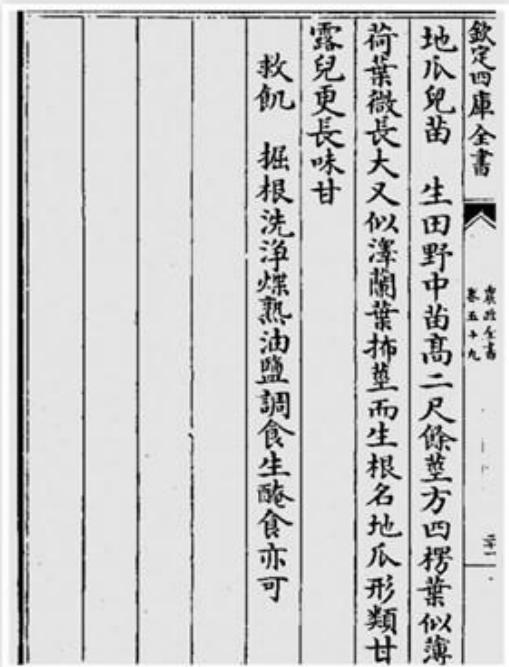 欽定四庫全書
農政全書
卷五十九
地瓜兒苗　生田野中苗高二尺餘莖方四楞葉似薄
荷葉微長大又似澤蘭葉抪莖而生根名地瓜形類甘
露兒更長味甘
救飢　掘根洗淨煠熟油鹽調食生醃食亦可